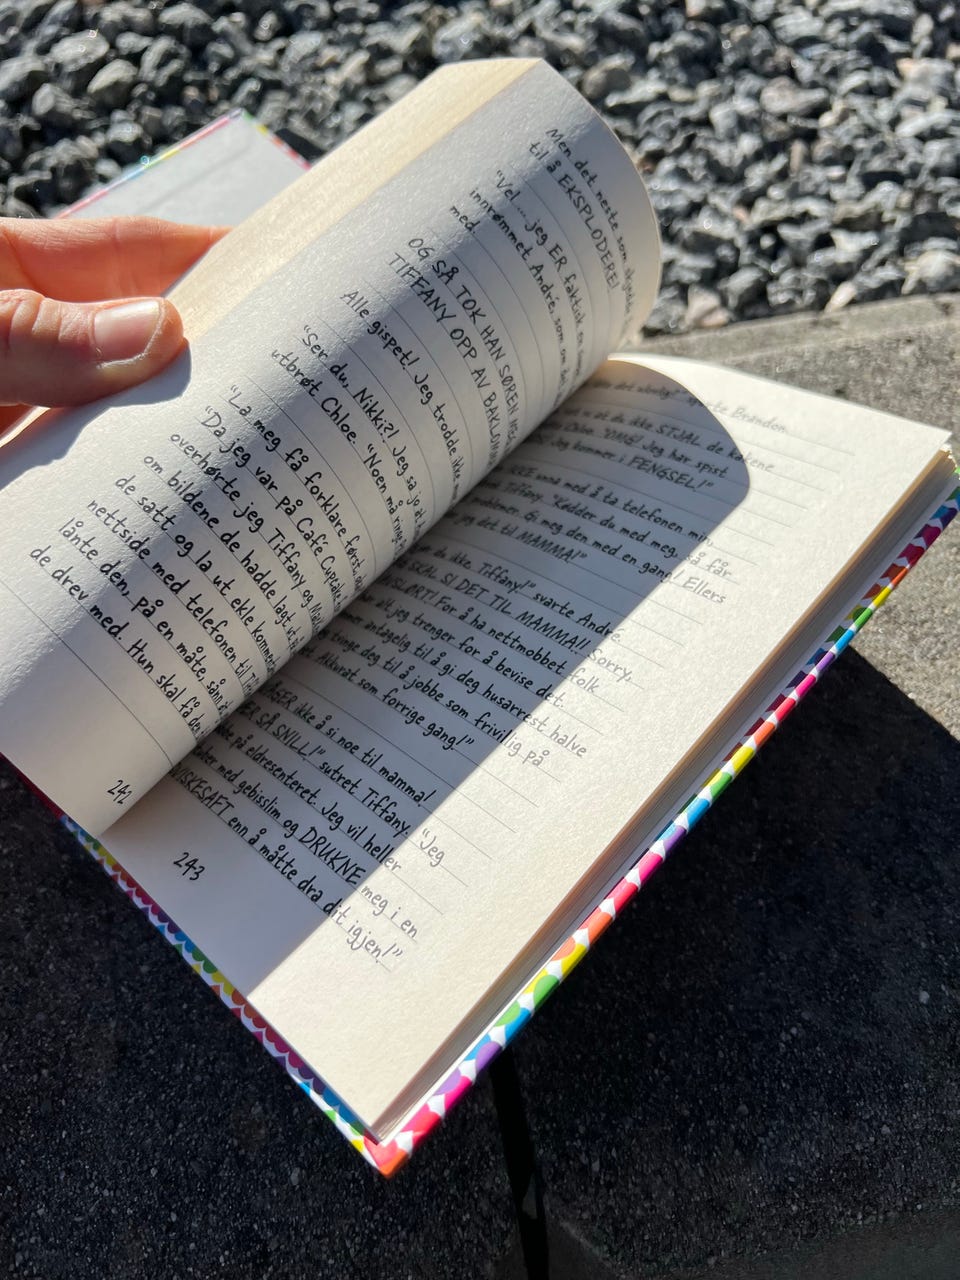 Men det neste som skjedde
til å EKSPLODERE!
"Vel ... jeg ER faktisk
innrømmet André, som om det
med
OG SÅ TOK HAN SØREN MEG
TIFFANY OPP AV BAKLOMM
Alle gispet! Jeg trodde ikke
"Ser du, Nikki?! Jeg sa jo at
utbrøt Chloe. "Noen må ringe
"La meg få forklare først,
"Da jeg var på Café Cupcake
overhørte jeg Tiffany og
om bildene de hadde lagt ut på
de satt og la ut ekle
nettside med telefonen til
lånte den, på en måte, sånn at
de drev med. Hun skal få den
242
Brandon.
at du ikke STJAL de kakene
Chloe. "OMG! Jeg har spist
Jeg kommer i FENGSEL!"
IKKE unna med å ta telefonen min,
Tiffany. "Kødder du med meg, så får
problemer. Gi meg den med en gang! Ellers
jeg det til MAMMA!"
du ikke, Tiffany!" svarte André.
SKAL SI DET TIL MAMMA!! Sorry,
ØRT! For å ha nettmobbet folk
alt jeg trenger for å bevise det.
antagelig til å gi deg husarrest halve
tvinge deg til å jobbe som frivillig på
Akkurat som forrige gang!"
ikke å si noe til mamma!
SÅ SNILL!" sutret Tiffany. "Jeg
på eldresenteret. Jeg vil heller
med gebisslim og DRUKNE meg i en
SVISKESAFT enn å måtte dra dit igjen!"
243